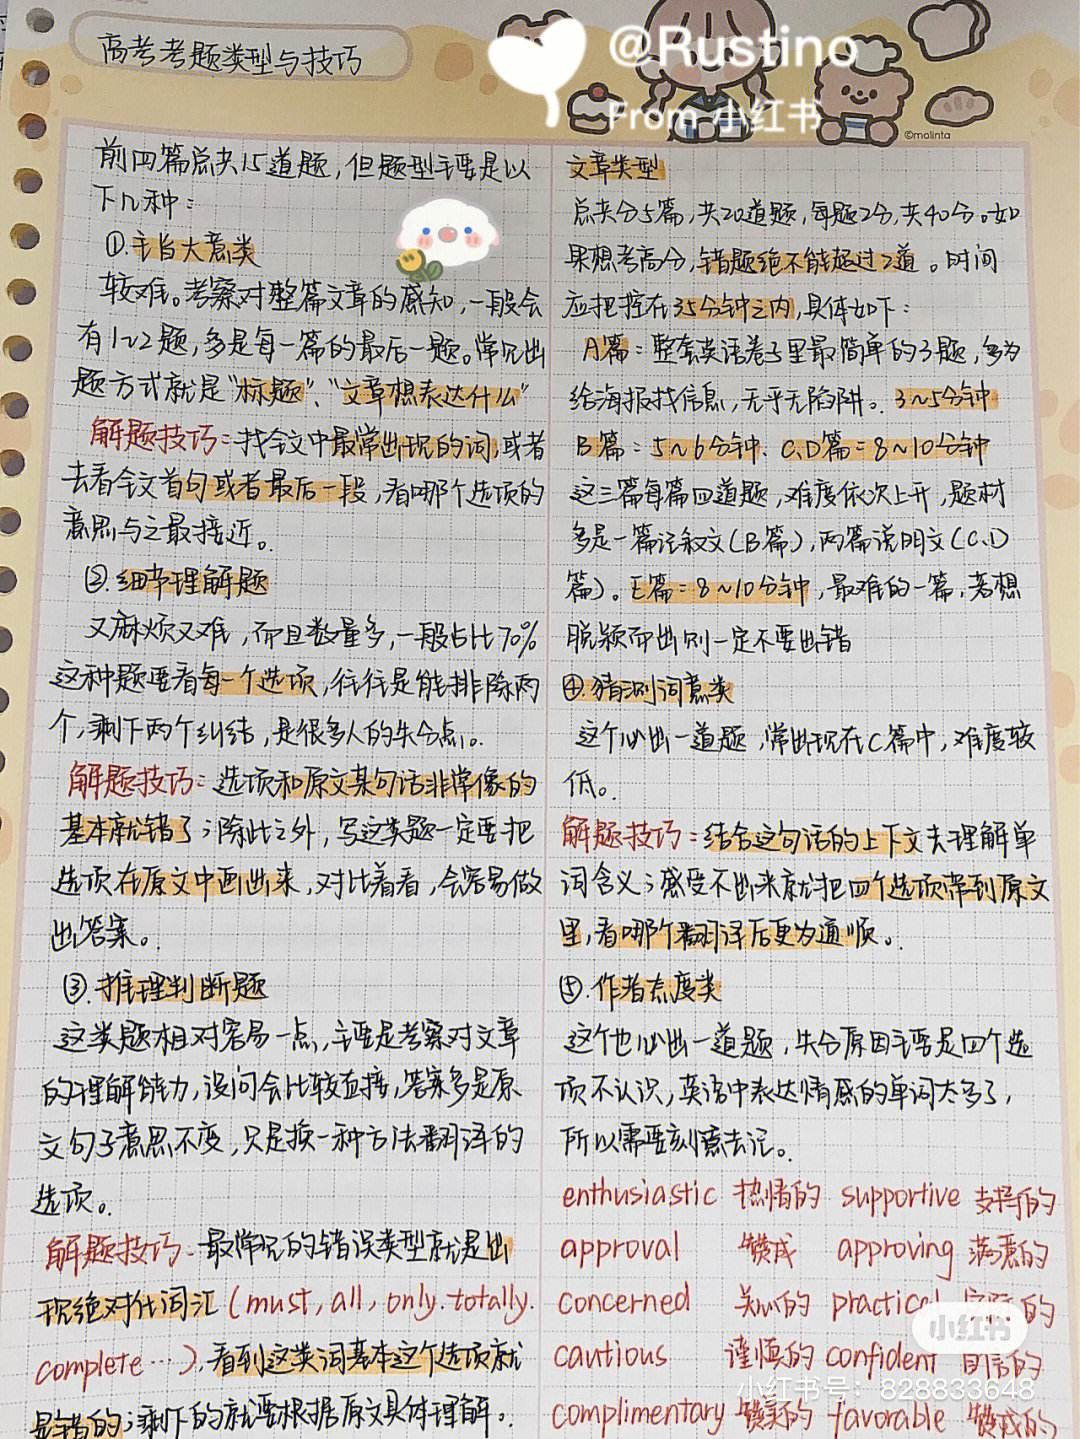 高考考题类型与技巧
@Rustino
From 小红书
©malinta
前四篇总共15道题，但题型主要是以
下几种：
①.主旨大意类
较难。考察对整篇文章的感知，一般会
有1~2题，多是每一篇的最后一题。常见出
题方式就是“标题”、“文章想表达什么”
解题技巧：找全文中最常出现的词，或者
去看全文首句或者最后一段，看哪个选项的
意思与之最接近。
②.细节理解题
又麻烦又难，而且数量多，一般占比70%
这种题要看每一个选项，往往是能排除两
个，剩下两个纠结，是很多人的失分点。
解题技巧：选项和原文某句话非常像的
基本就错了；除此之外，写这类题一定要把
选项在原文中画出来，对比着看，会容易做
出答案。
③.推理判断题
这类题相对容易一点，主要是考察对文章
的理解能力，设问会比较直接，答案多是原
文句子意思不变，只是换一种方法翻译的
选项。
解题技巧：最常见的错误类型就是出
现绝对化词汇（must, all, only. totally.
complete…），看到这类词基本这个选项就
是错的；剩下的就要根据原文具体理解。
文章类型
总共分5篇，共20道题，每题2分，共40分。如
果想考高分，错题绝不能超过2道。时间
应把控在35分钟之内，具体如下：
A篇：整套英语卷子里最简单的3题，多为
给海报找信息，无乎无陷阱。3~5分钟
B篇：5~6分钟. C.D篇：8~10分钟
这三篇每篇四道题，难度依次上升，题材
多是一篇记叙文（B篇），两篇说明文（C.D
篇）。E篇：8~10分钟，最难的一篇，若想
脱颖而出则一定不要出错
④.猜测词意类
这个必出一道题，常出现在C篇中，难度较
低。
解题技巧：结合这句话的上下文去理解单
词含义；感受不出来就把四个选项带到原文
里，看哪个翻译后更为通顺。
⑤.作者态度类
这个也必出一道题，失分原因主要是四个选
项不认识，英语中表达情感的单词太多了，
所以需要刻意去记。
enthusiastic 热情的 supportive 支持的
approval 赞成 approving 满意的
concerned 关心的 practical 实际的
小红书
cautious 谨慎的 confident 自信的
小红书号：828833648
complimentary 赞美的 favorable 赞成的